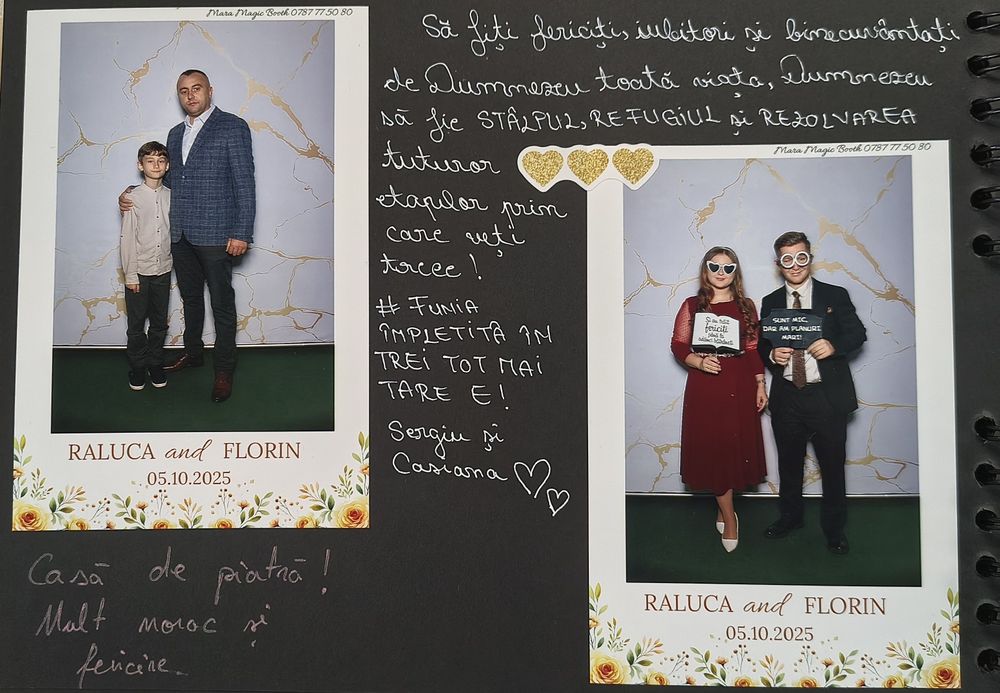 Mara Magic Booth 0787 77 50 80
RALUCA and FLORIN
05.10.2025
Casă de piatră!
Mult noroc și
fericire.
Să fiți fericiți, iubitori și binecuvântați
de Dumnezeu toată viața, Dumnezeu
să fie STÂLPUL, REFUGIUL și REZOLVAREA
tuturor
etapelor prin
care veți
trece!
# FUNIA
ÎMPLETITĂ ÎN
TREI TOT MAI
TARE E!
Sergiu și
Casiana
Mara Magic Booth 0787 77 50 80
Și au trăit
fericiți
până la
adânci bătrâneți
SUNT MIC,
DAR AM PLANURI
MARI!
RALUCA and FLORIN
05.10.2025